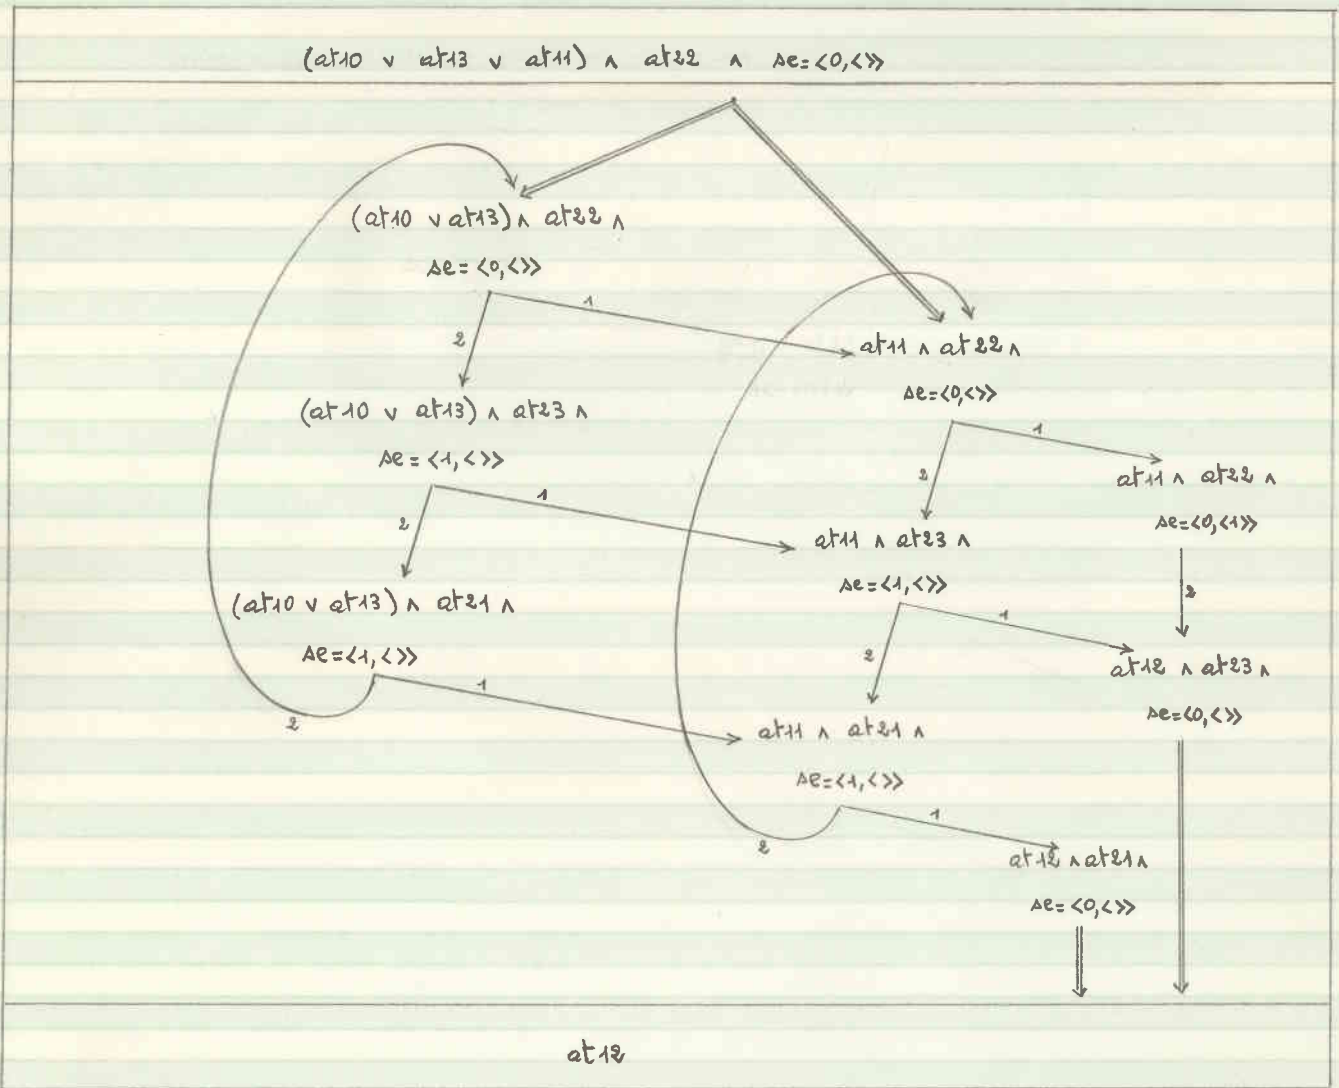 (at10 ∨ at13 ∨ at11) ∧ at22 ∧ se=<0,<>>
(at10 ∨ at13) ∧ at22 ∧
se=<0,<>>
1
2
at11 ∧ at22 ∧
se=<0,<>>
(at10 ∨ at13) ∧ at23 ∧
se=<1,<>>
1
2
1
2
at11 ∧ at22 ∧
se=<0,<1>>
2
at11 ∧ at23 ∧
se=<1,<>>
1
2
(at10 ∨ at13) ∧ at21 ∧
se=<1,<>>
1
2
at12 ∧ at23 ∧
se=<0,<>>
at11 ∧ at21 ∧
se=<1,<>>
1
2
at12 ∧ at21 ∧
se=<0,<>>
at12